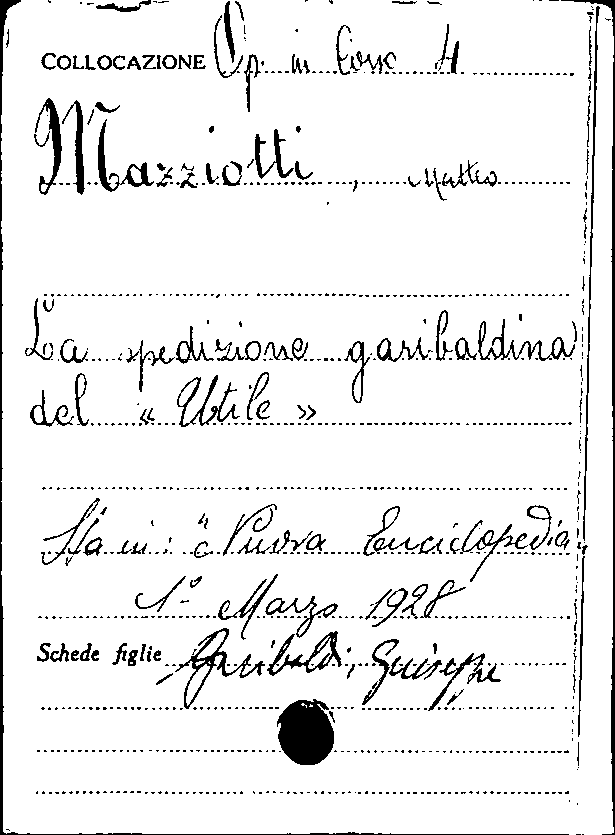 COLLOCAZIONE Op. in Corso 4
Mazziotti, Matteo
La spedizione garibaldina
del « Utile »
Sta in: "Nuova Enciclopedia"
1º Marzo 1928
Schede figlie Garibaldi, Guiseppe